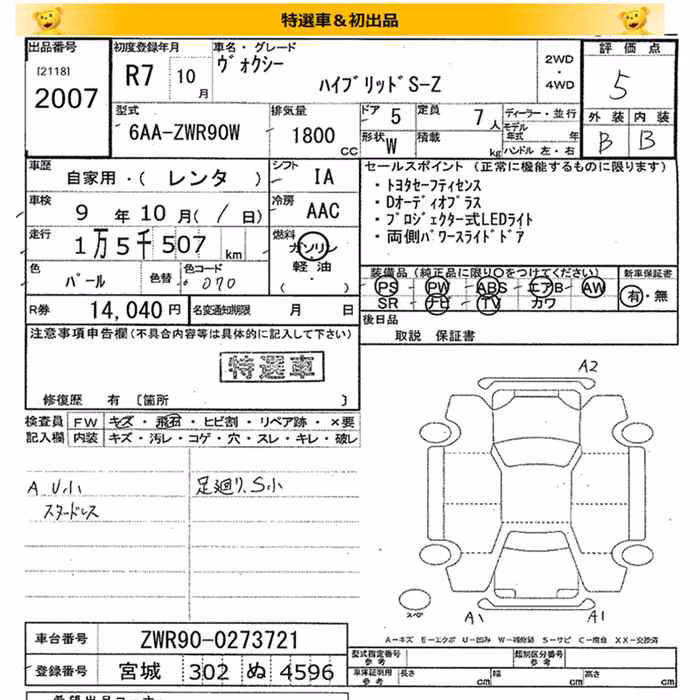 特選車＆初出品
出品番号 初度登録年月 車名・グレード 評価点
[2118] R7 10月 ヴォクシー 2WD・4WD 5
2007 ハイブリッドS-Z
型式 排気量 ドア 5 定員 7人 ディーラー・並行 外装 内装
6AA-ZWR90W 1800CC 形状 W 積載 kg モデル年式 年 B B
ハンドル 左・右
車歴 自家用・(レンタ) シフト IA セールスポイント(正常に機能するものに限ります)
・トヨタセーフティセンス
車検 9年10月(/日) 冷房 AAC ・Dオーディオプラス
・プロジェクター式LEDライト
走行 1万5千507km 燃料 ガソリン・軽油・( ) ・両側パワースライドドア
色 パール 色替 色コード 070 装備品(純正品に限り○をつけてください) 新車保証書
PS PW ABS エアB AW 有・無
R券 14,040円 名変通知期限 月 日 SR ナビ TV カワ
注意事項申告欄(不具合内容等は具体的に記入して下さい) 後日品
取説 保証書
特選車
修復歴 有 [箇所 ]
検査員 FW キズ・飛石・ヒビ割・リペア跡・×要
記入欄 内装 キズ・汚レ・コゲ・穴・スレ・キレ・破レ
A2
A U小 足廻り、S小
スタッドレス
スペア A1 A1
A-キズ E-エクボ U-凹み W-補修跡 S-サビ C-腐食 XX-交換済
車台番号 ZWR90-0273721
型式指定番号 参考 類別区分番号 参考
登録番号 宮城 302 ぬ 4596 車庫証明用 参考 長さ cm 幅 cm 高さ cm